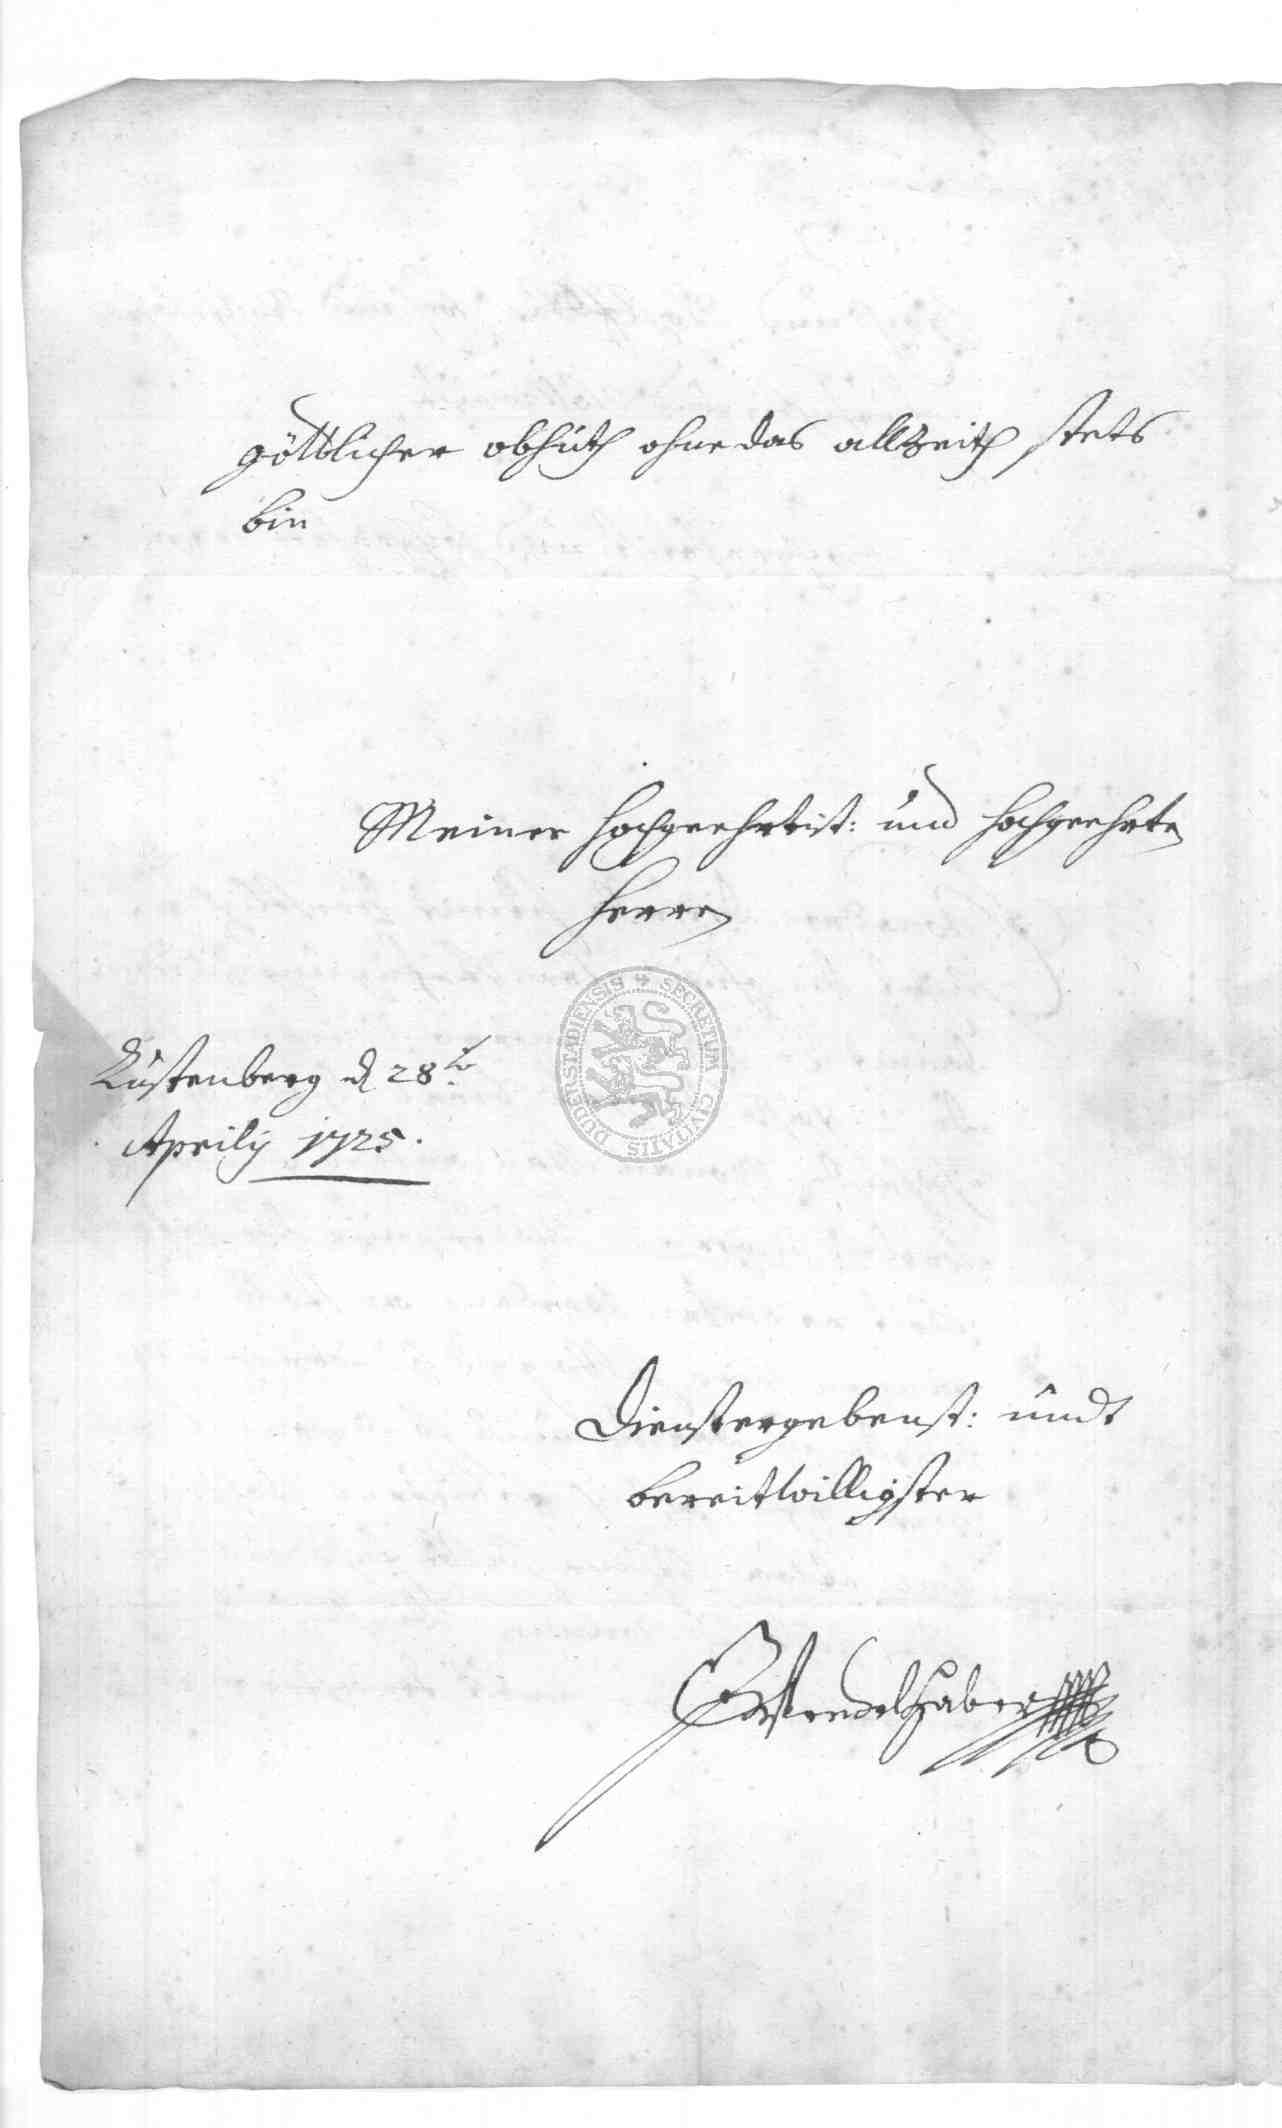 göttlicher obhuth ohnedas allzeith stets
bin
Meiner hochgeehrtist: und hochgeehrten
herren
Rustenberg d 28to
Aprilij 1725.
SECRETUM CIVITATIS DUDERSTADIENSIS
Dienstergebenst: undt
bereitwilligster